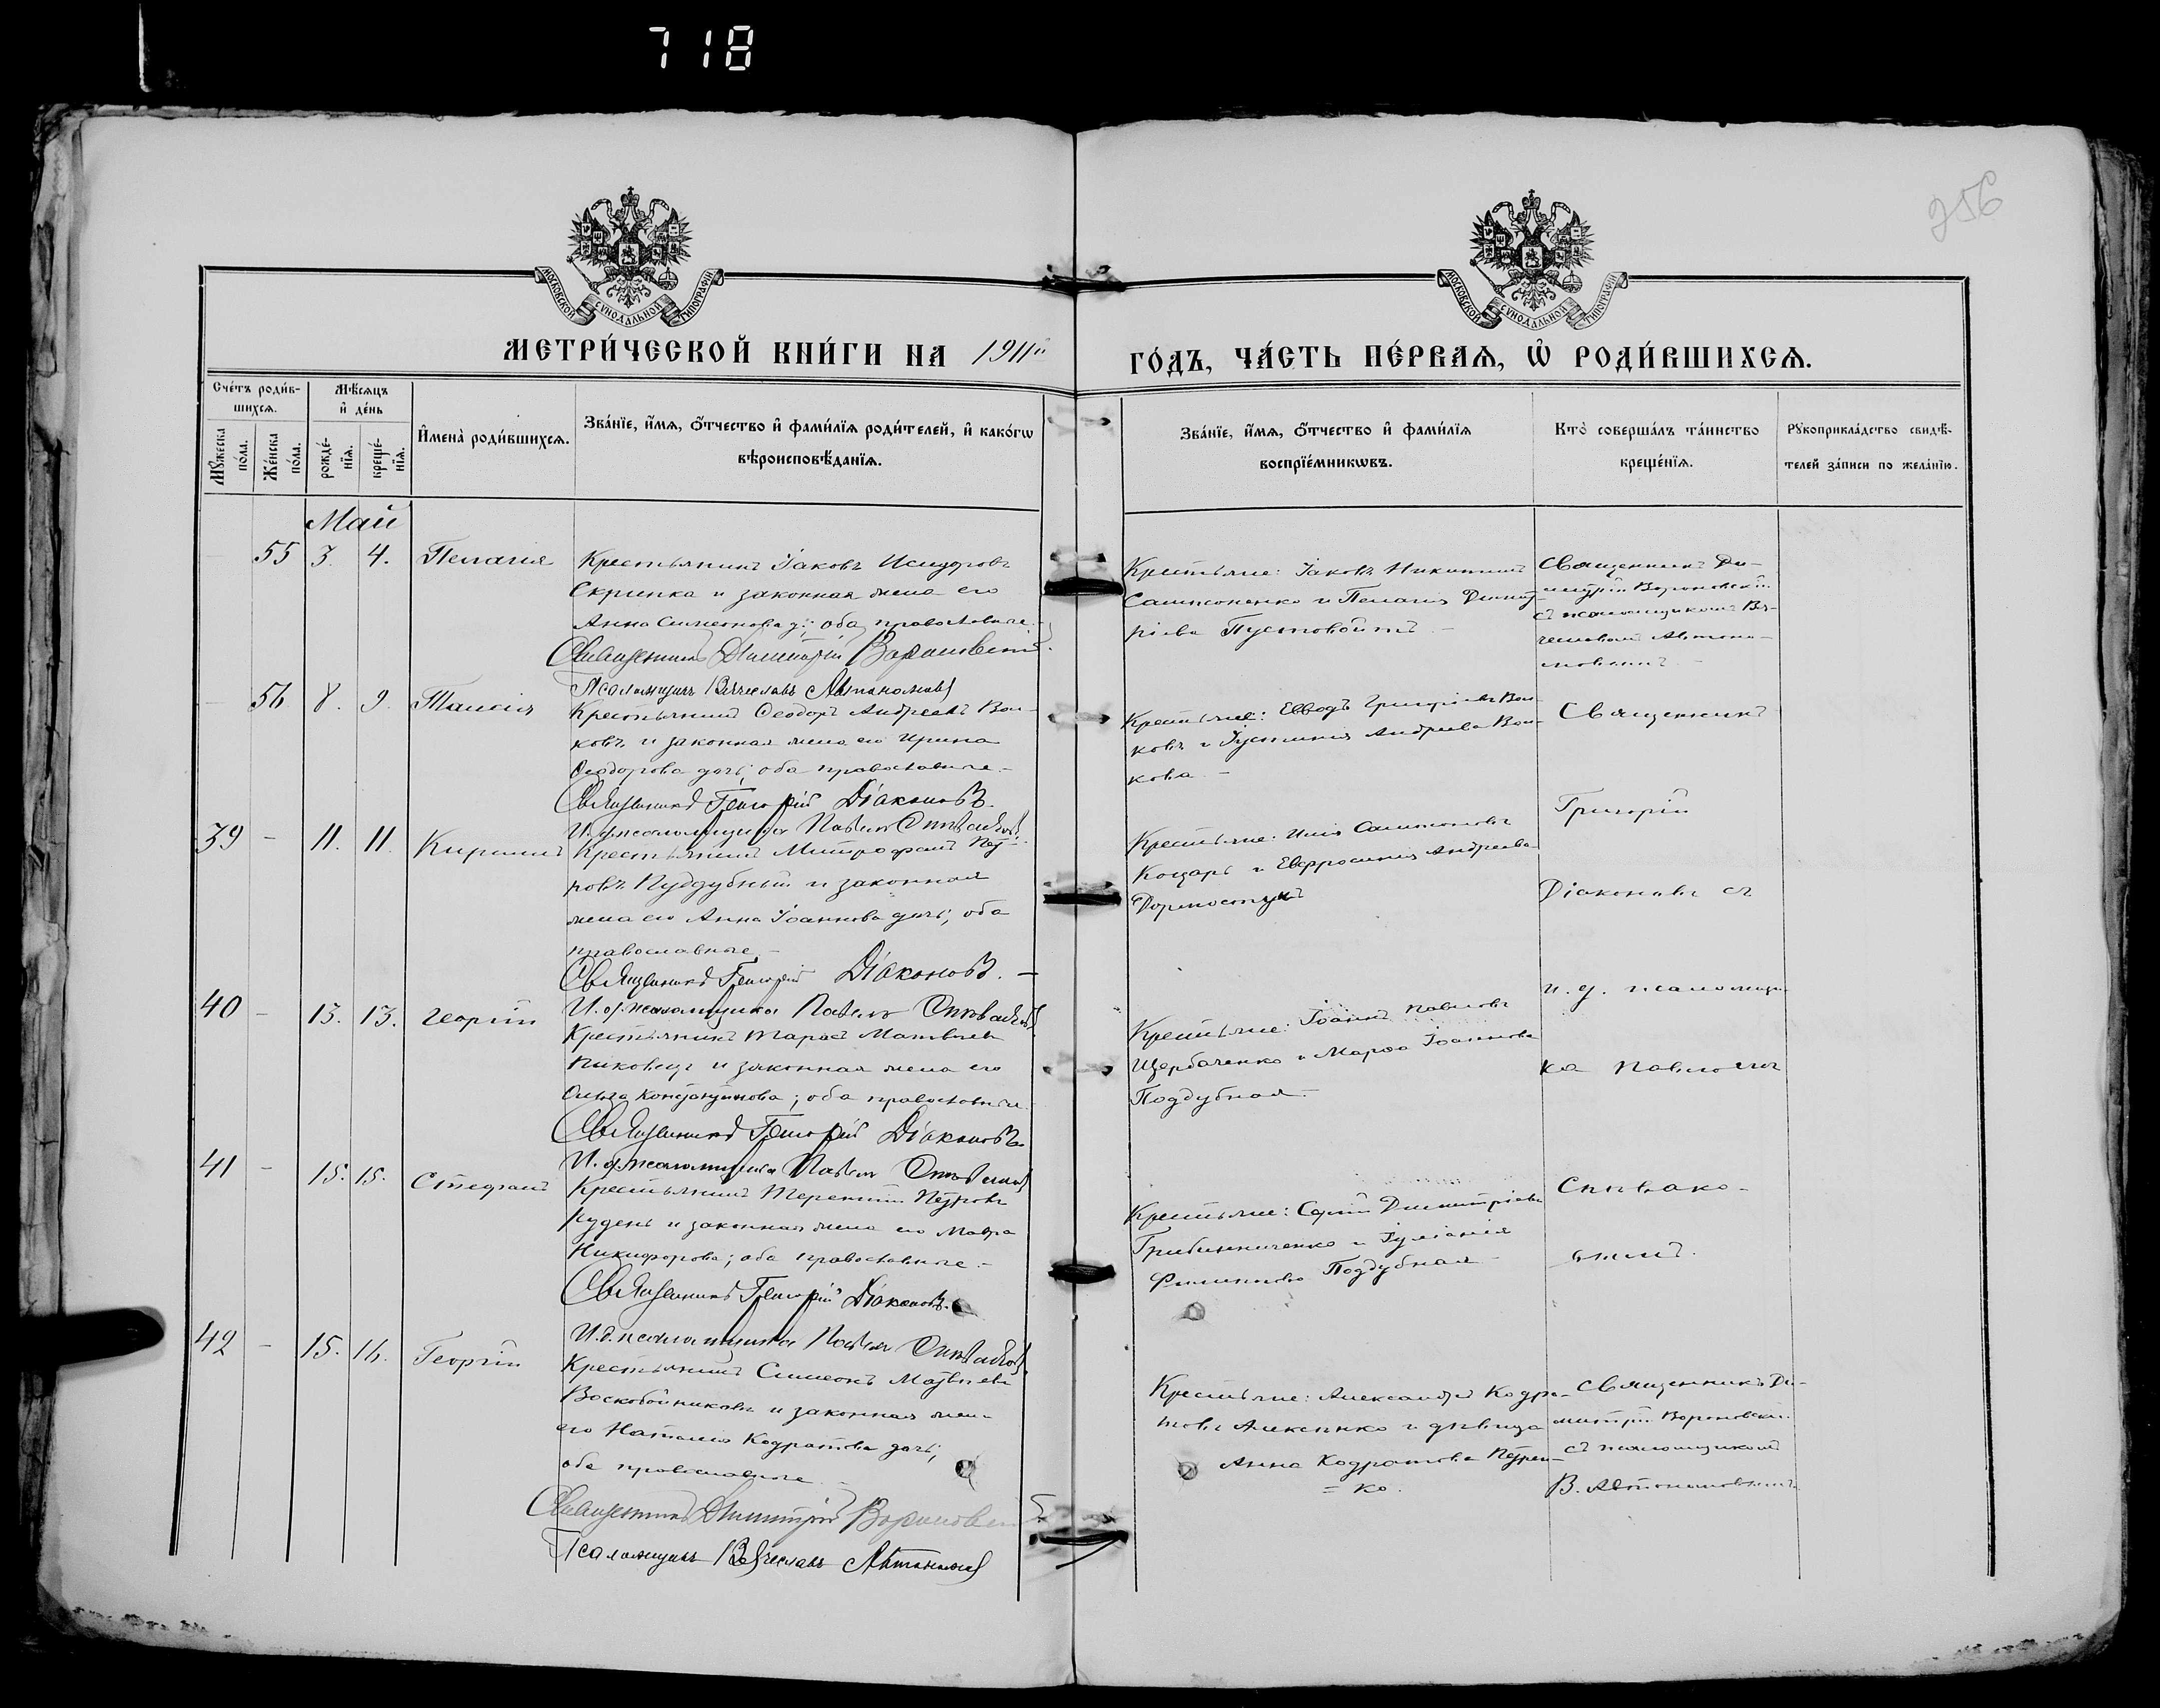 718
256
МОСКОВСКОЙ СУНОДАЛЬНОЙ ТИПОГРАФІИ
МОСКОВСКОЙ СУНОДАЛЬНОЙ ТИПОГРАФІИ
МЕТРИ́ЧЕСКОЙ КНИ́ГИ НА 1911й ГО́ДЪ, ЧА́СТЬ ПЕ́РВАѦ, Ѡ҆ РОДИ́ВШИХСѦ.
Сче́тъ роди́в-
шихсѧ.
Мꙋ́жеска по́ла.
Же́нска по́ла.
Мѣ́сѧцъ
и҆ де́нь
рожде́-
нїѧ.
креще́-
нїѧ.
И҆мена̀ роди́вшихсѧ.
Зва́нїе, и҆́мѧ, ѻ҆́тчество и҆ фами́лїѧ роди́телей, и҆ како́гѡ
вѣроисповѣ́данїѧ.
Зва́нїе, и҆́мѧ, ѻ҆́тчество и҆ фами́лїѧ
воспрїе́мникѡвъ.
Кто̀ соверша́лъ та́инство
креще́нїѧ.
Рꙋкоприкла́дство свидѣ́-
телей за́писи по жела́нїю.
Май
55 3. 4. Пелагія
Крестьянинъ Іаковъ Исидоровъ
Скрипка и законная жена его
Анна Симеонова д.; оба православные.
Священникъ Димитрій Вороновскій
Псаломщикъ Вячеславъ Автономовъ
Крестьяне: Іаковъ Никитинъ
Самсоненко и Пелагія Димит-
ріева Пустовойтъ
Священникъ Ди-
митрій Вороновскій
съ псаломщикомъ Вя-
чеславомъ Автоно-
мовымъ
56 8. 9. Таисія
Крестьянинъ Ѳеодоръ Андреевъ Вол-
ковъ и законная жена его Ирина
Ѳеодорова дочь; оба православные.
Священникъ Григорій Діаконовъ.
И. д. псаломщика Павелъ Спѣваковъ
Крестьяне: Григорьевъ Вол-
ковъ и Іустинія Андреева Вол-
кова
Священникъ
Григорій
Діаконовъ съ
и. д. псаломщи-
ка Павломъ
Спѣвако-
вымъ.
39 – 11. 11. Кириллъ
Крестьянинъ Митрофанъ Пет-
ровъ Пуддубный и законная
жена его Анна Іоаннова дочь; оба
православные
Священникъ Григорій Діаконовъ.
И. д. псаломщика Павелъ Спѣваковъ
Крестьяне: Илія Самсоновъ
Коцарь и Евфросинія Андреева
40 – 13. 13. Георгій
Крестьянинъ Тарасъ Матвѣевъ
Пиковецъ и законная жена его
Ольга Константинова; оба православные.
Священникъ Григорій Діаконовъ.
И. д. псаломщика Павелъ Спѣваковъ
Крестьяне: Іоаннъ Павловъ
Щербаченко и Марѳа Іоаннова
Поддубная
41 – 15. 15. Стефанъ
Крестьянинъ Терентій Петровъ
Рудень и законная жена его Мавра
Никифорова; оба православные.
Священникъ Григорій Діаконовъ.
И. д. псаломщика Павелъ Спѣваковъ
Крестьяне: Сергій Димитріевъ
Грибиниченко и Іуліанія
Филиппова Поддубная
42 – 15. 16. Георгій
Крестьянинъ Симеонъ Матвѣевъ
Воскобойниковъ и законная жена
его Наталія Кодратова дочь;
оба православные
Священникъ Димитрій Вороновскій
Псаломщикъ Вячеславъ Автономовъ
Крестьяне: Александръ Кодра-
товъ Алексенко и дѣвица
Анна Кодратова Петрен-
= ко.
Священникъ Ди-
митрій Вороновскій
съ псаломщикомъ
В. Автономовымъ